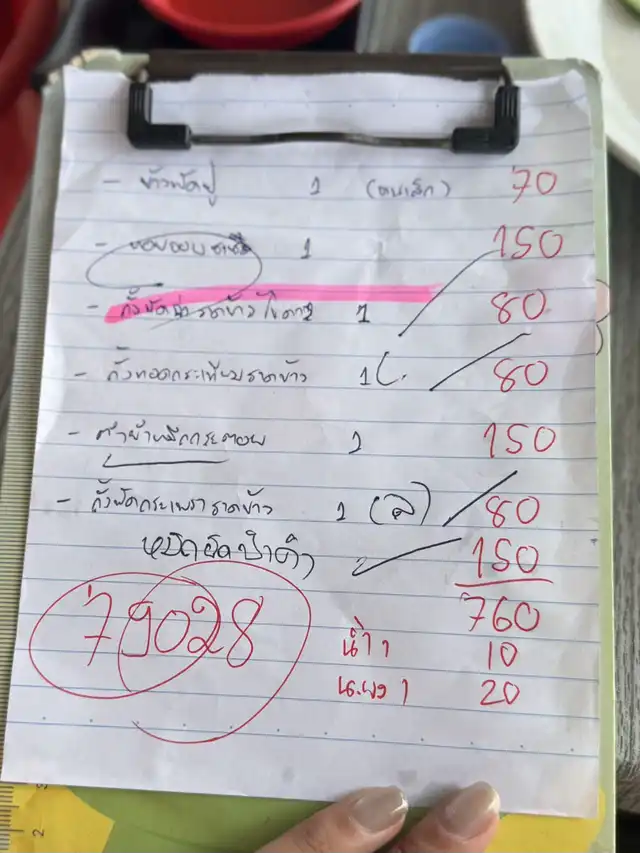 - ข้าวผัดปู 1 (จานเล็ก) 70
- หอยอบ 1 150
- กุ้งผัดฉ่าราดข้าว ไข่ดาว 1 80
- กุ้งทอดกระเทียมราดข้าว 1 80
- 1 150
- กุ้งผัดกระเพราราดข้าว 1 80
หมึกผัดน้ำดำ 150
760
น้ำ 1 10
น.แข็ง 1 20
790 28